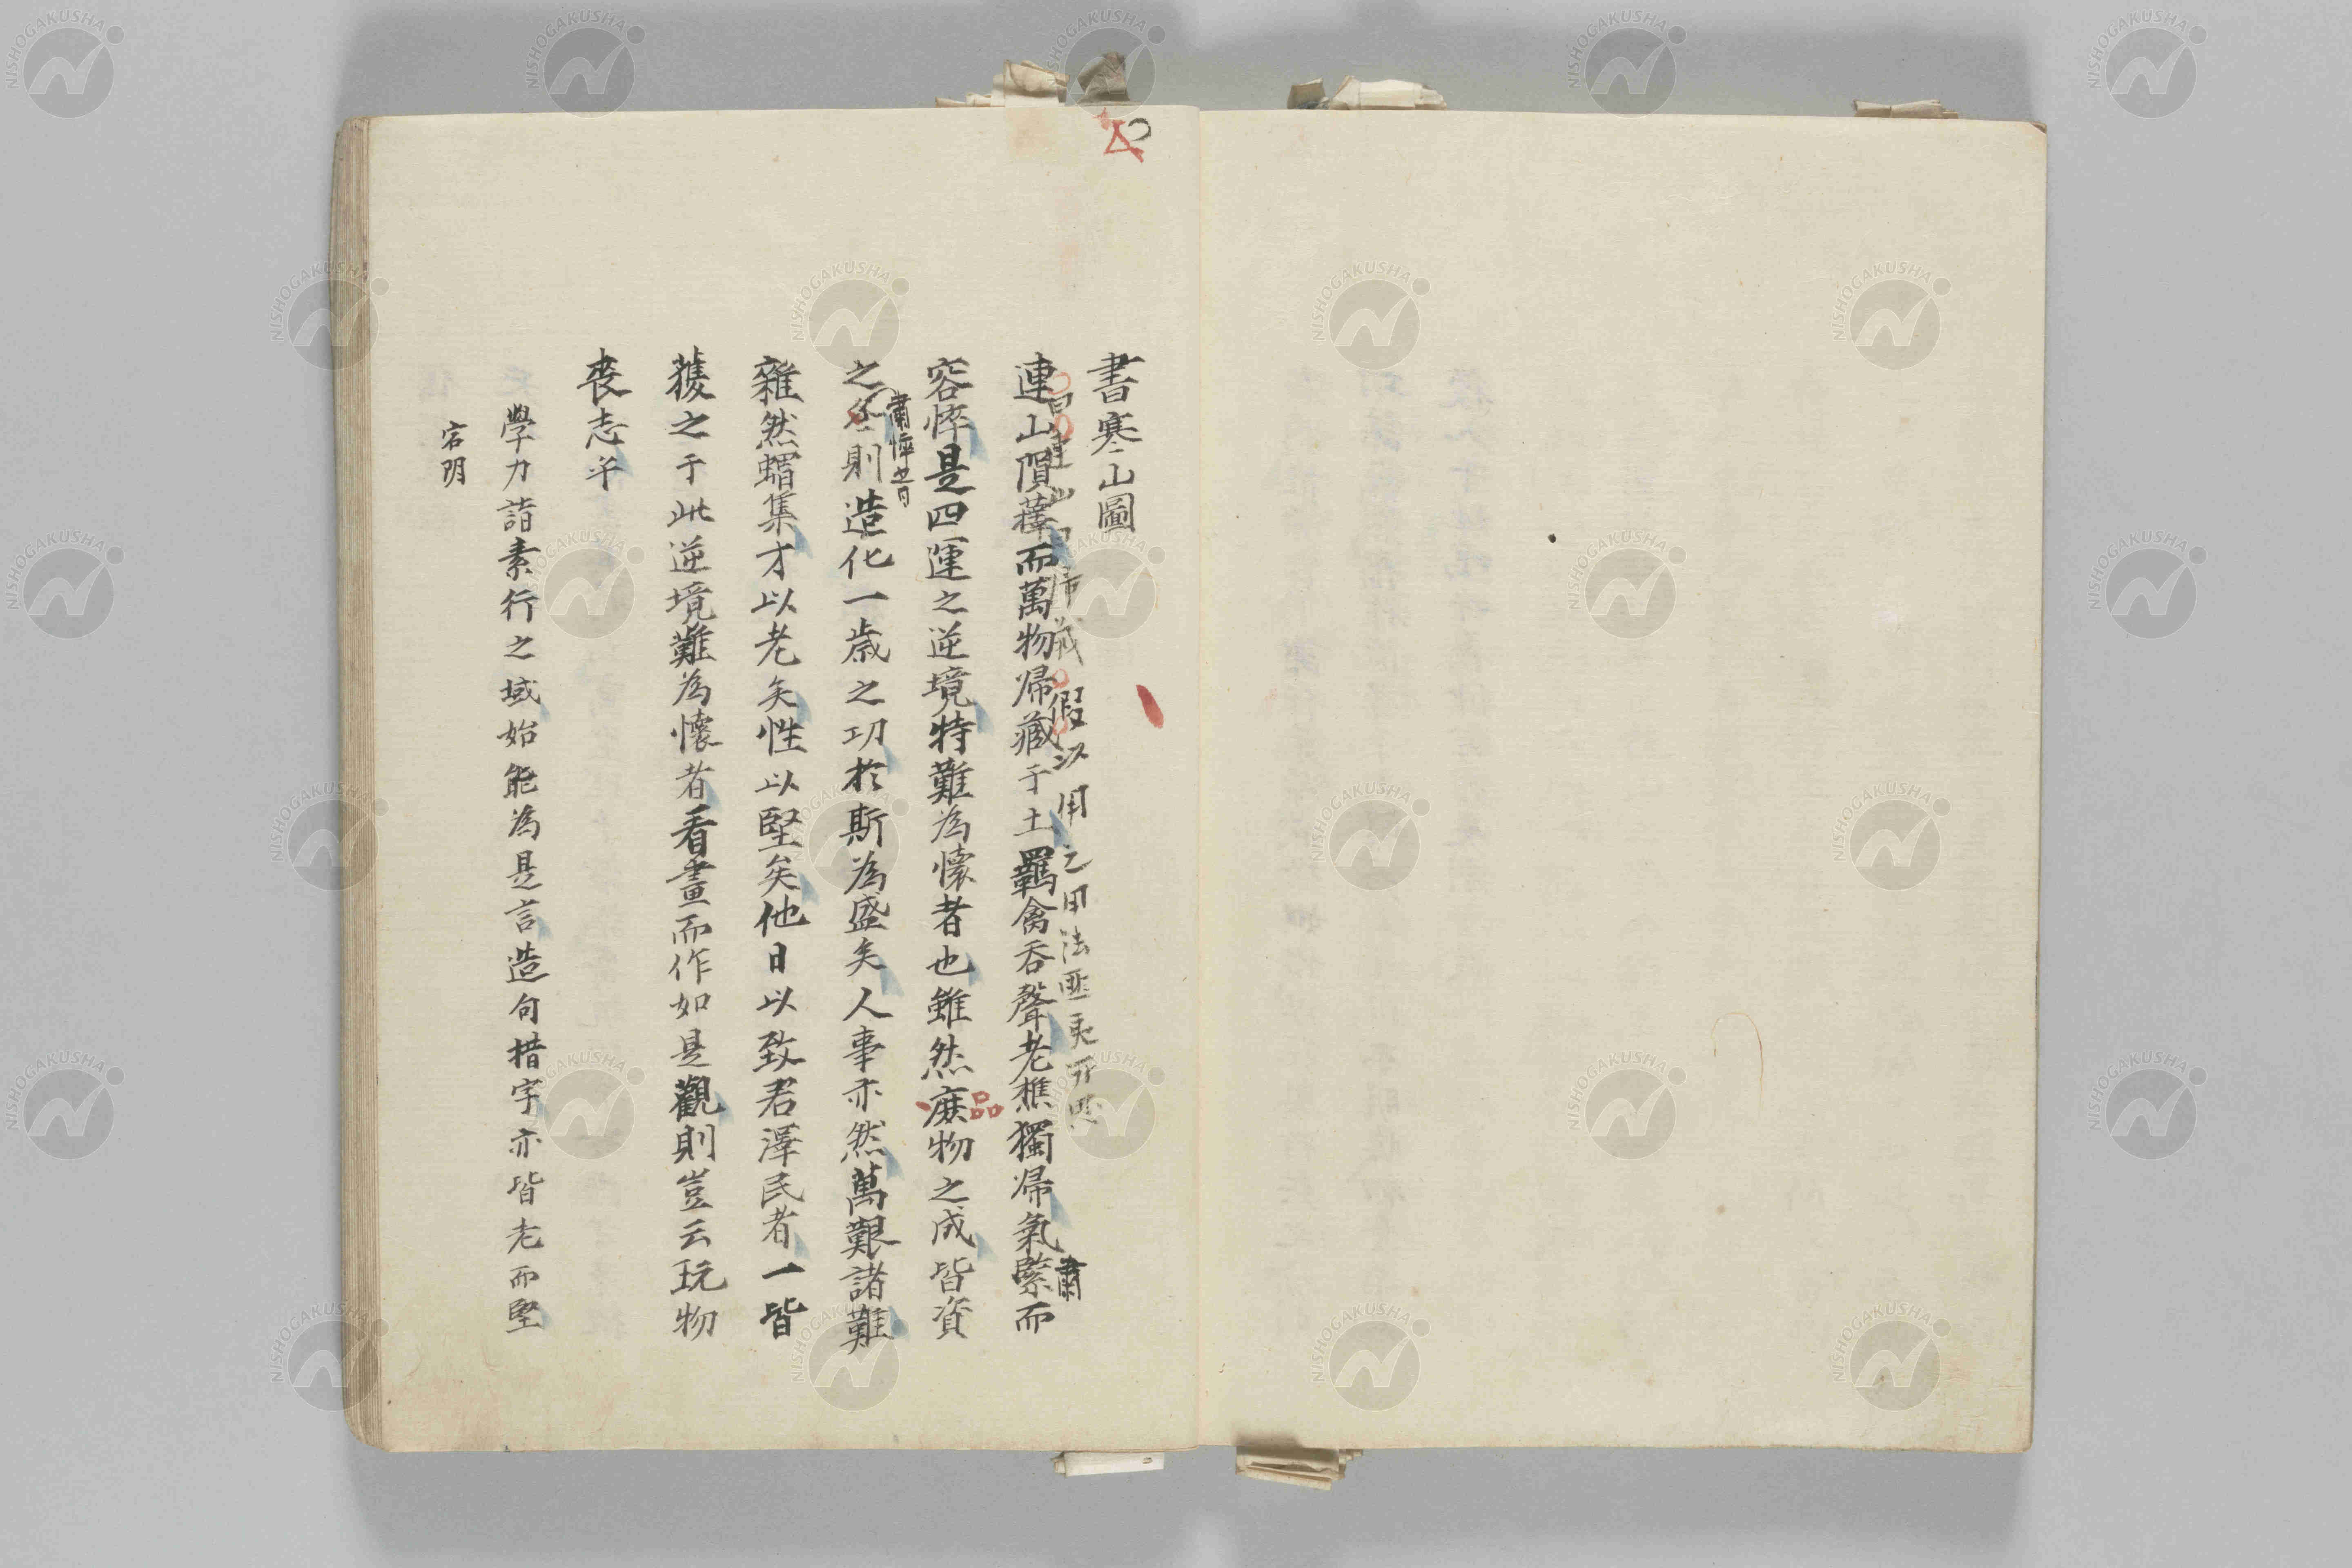 書寒山圖
曰連山曰帰蔵假以用之用法匪夷所思
連山隕蘀而萬物帰蔵于土羈禽呑聲老樵獨帰氣緊而
肅
容悴是四運之逆境特難為懷者也雖然庶物之成皆資
品
肅悴也日
之冬則造化一歳之功於斯為盛矣人事亦然萬艱諸難
雜然蝟集才以老矣性以堅矣他日以致君澤民者一皆
獲之于此逆境難為懷者看畫而作如是觀則豈云玩物
喪志乎
學力詣素行之域始能為是言造句措字亦皆老而堅
宕阴
NISHOGAKUSHA